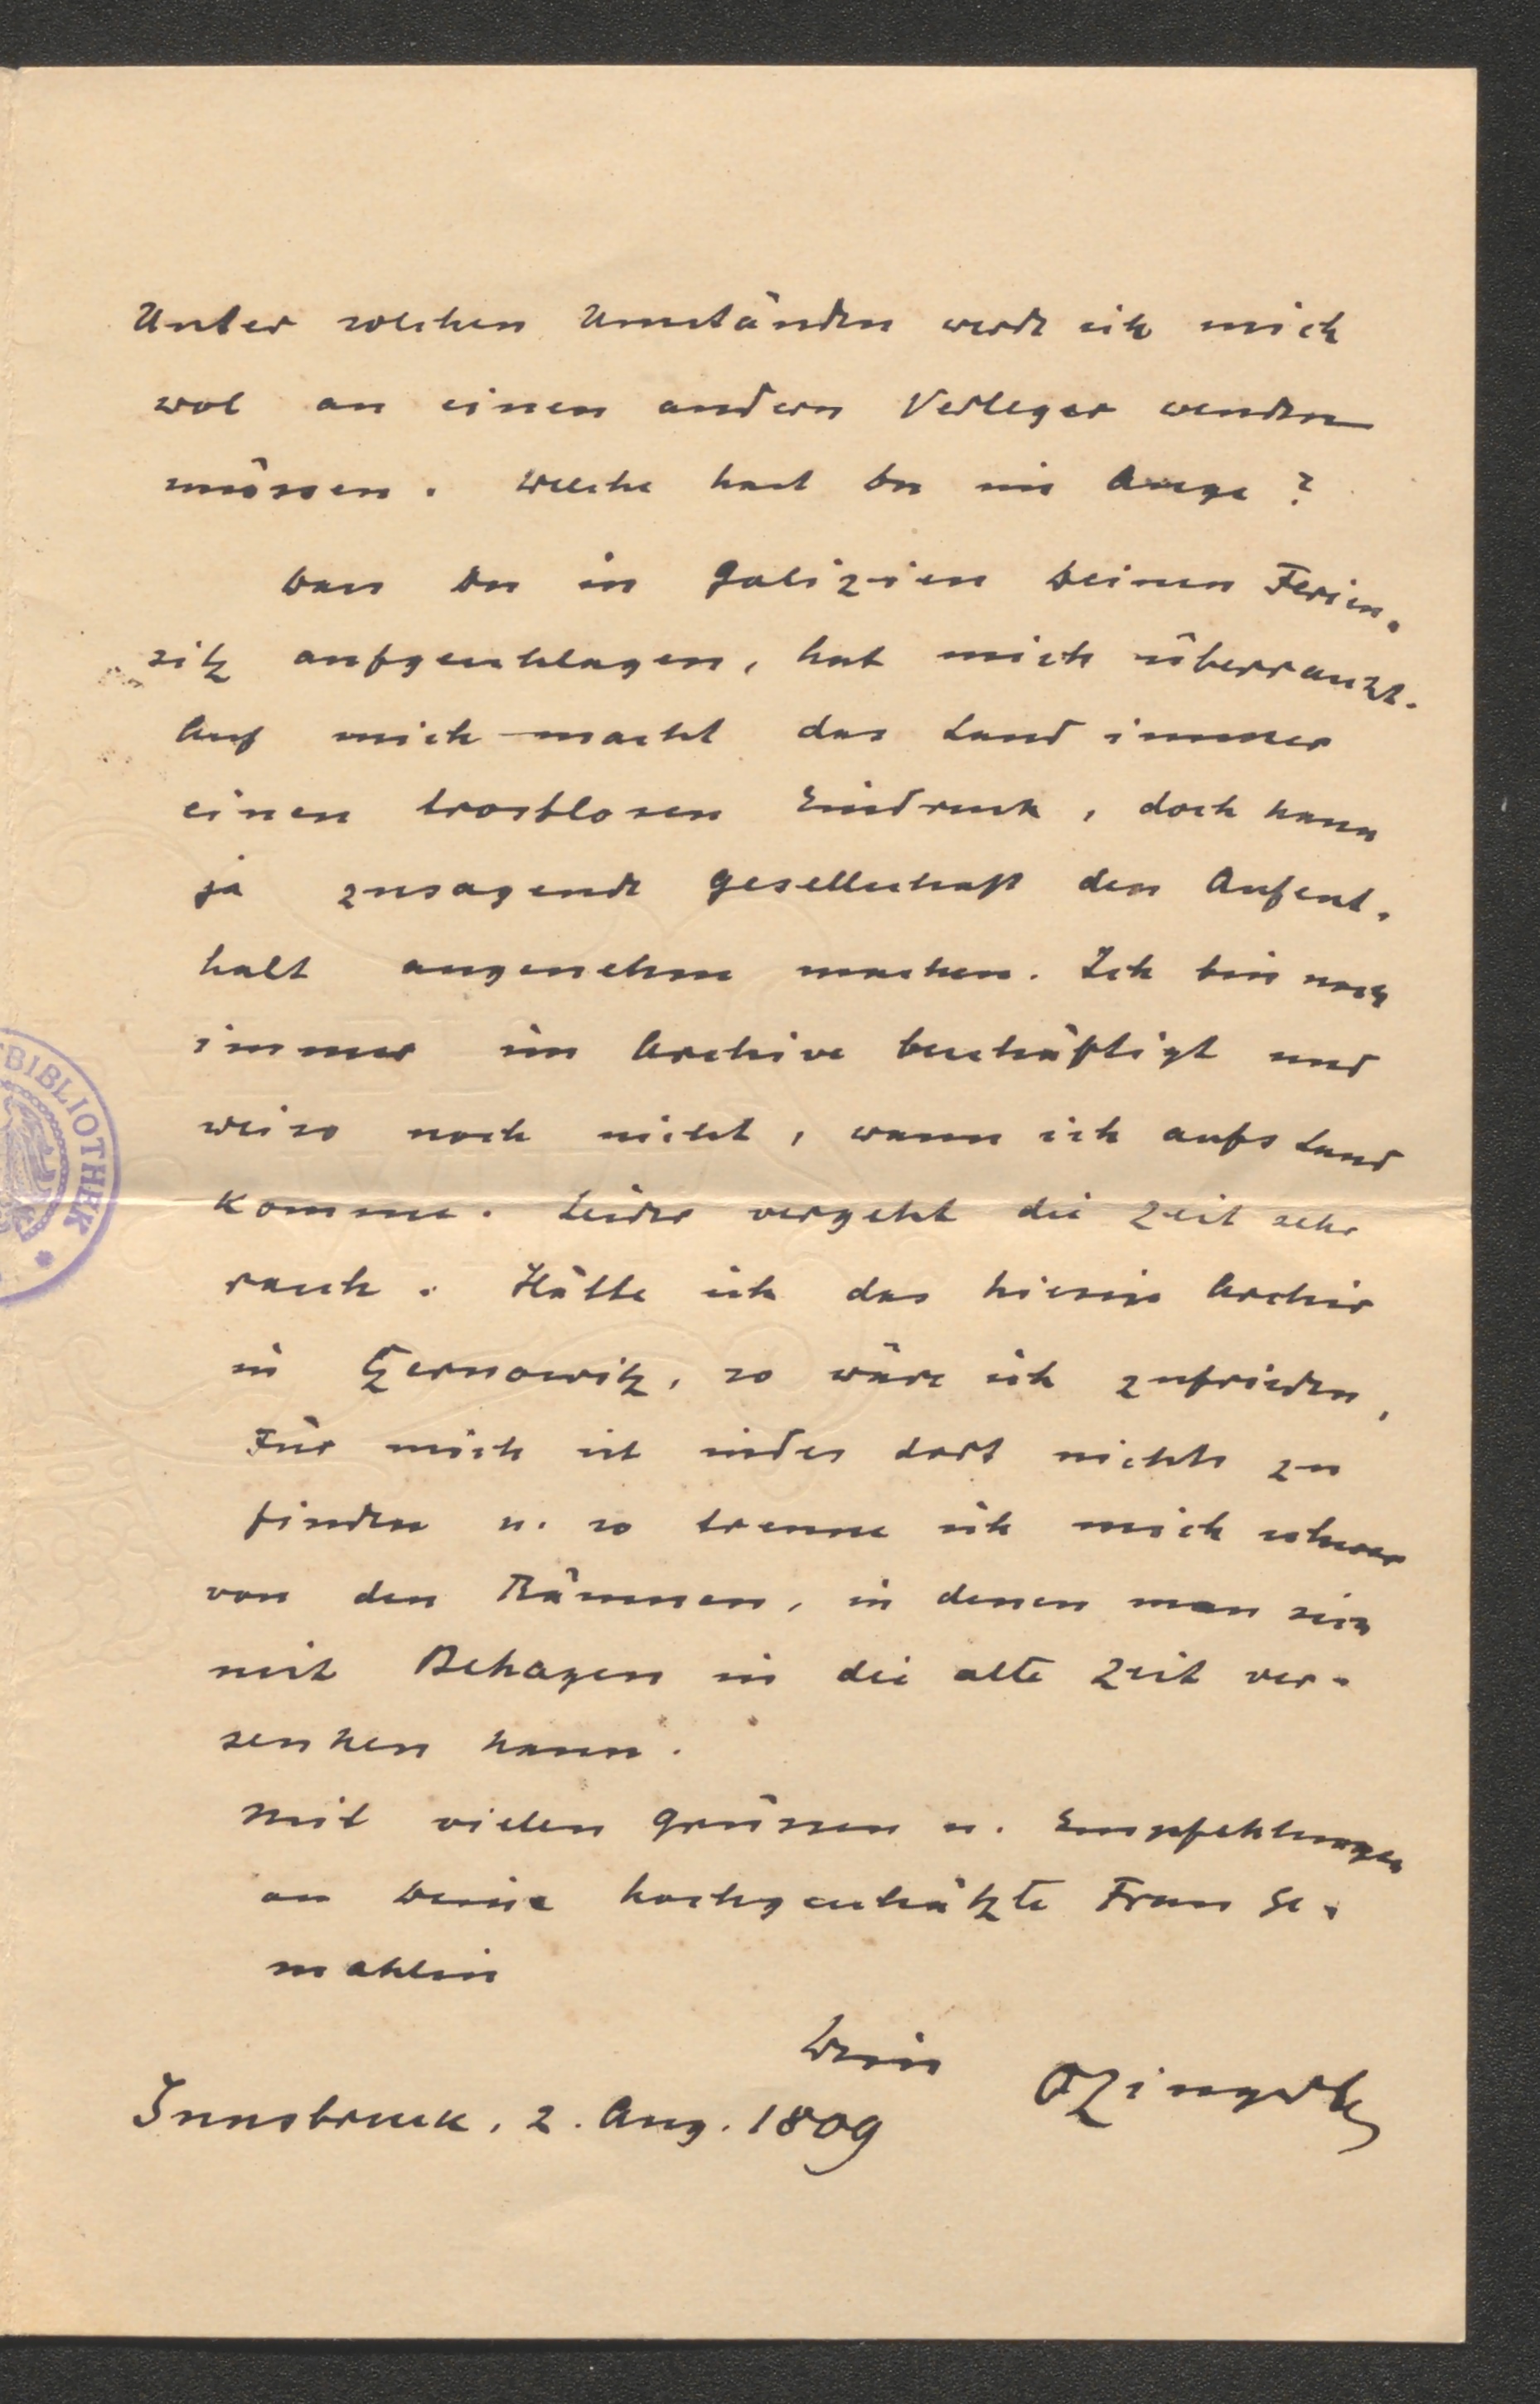 Unter solchen Umständen werde ich mich
wol an einen andern Verleger wenden
müssen. Welche hast Du im Auge?
Dass Du in Galizien Deinen Ferien-
sitz aufgeschlagen, hat mich überrascht.
Auf mich macht das Land immer
einen trostlosen Eindruck, doch kann
ja zusagende Gesellschaft den Aufent-
halt angenehm machen. Ich bin noch
immer im Archive beschäftigt und
weiss noch nicht, wann ich aufs Land
komme. Leider vergeht die Zeit sehr
rasch. Hätte ich das hiesige Archiv
in Czernowitz, so wäre ich zufrieden,
Für mich ist indes dort nichts zu
finden u. so trenne ich mich schwer
von den Räumen, in denen man sich
mit Behagen in die alte Zeit ver-
senken kann.
Mit vielen Grüssen u. Empfehlungen
an Deine hochgeschätzte Frau Ge-
mahlin
Dein OZingerle
Innsbruck, 2. Aug. 1809
BIBLIOTHEK